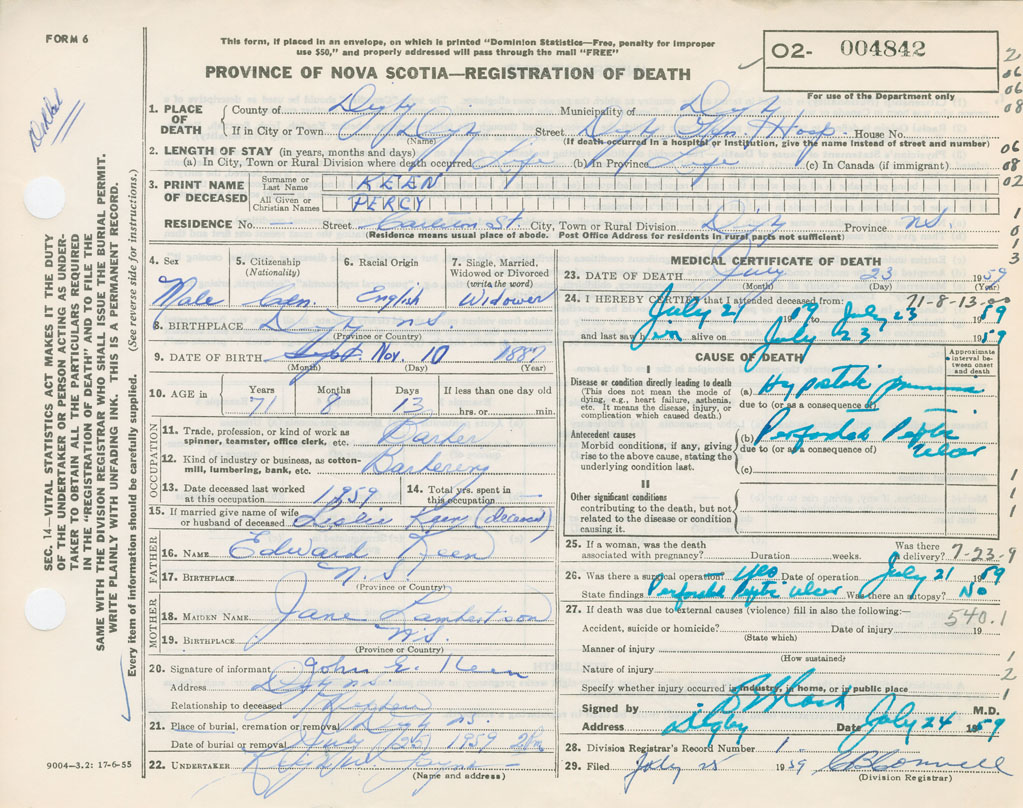 FORM 6
This form, if placed in an envelope, on which is printed "Dominion Statistics—Free, penalty for improper
use $50," and properly addressed will pass through the mail "FREE"
PROVINCE OF NOVA SCOTIA—REGISTRATION OF DEATH
O2- 004842
For use of the Department only
2
06
06
08
06
08
02
1
0
1
3
SEC. 14—VITAL STATISTICS ACT MAKES IT THE DUTY
OF THE UNDERTAKER OR PERSON ACTING AS UNDER-
TAKER TO OBTAIN ALL THE PARTICULARS REQUIRED
IN THE "REGISTRATION OF DEATH" AND TO FILE THE
SAME WITH THE DIVISION REGISTRAR WHO SHALL ISSUE THE BURIAL PERMIT.
WRITE PLAINLY WITH UNFADING INK. THIS IS A PERMANENT RECORD.
Every item of information should be carefully supplied. (See reverse side for instructions.)
1. PLACE OF DEATH County of Digby Municipality of Digby
If in City or Town Digby Street Digby Gen. Hosp. House No.
(Name) (If death occurred in a hospital or institution, give the name instead of street and number)
2. LENGTH OF STAY (in years, months and days)
(a) In City, Town or Rural Division where death occurred Life (b) In Province Life (c) In Canada (if immigrant)
3. PRINT NAME OF DECEASED Surname or Last Name KEEN
All Given or Christian Names PERCY
RESIDENCE No. — Street Carleton St. City, Town or Rural Division Digby Province N.S.
(Residence means usual place of abode. Post Office Address for residents in rural parts not sufficient)
4. Sex 5. Citizenship (Nationality) 6. Racial Origin 7. Single, Married, Widowed or Divorced (write the word)
Male Can. English Widower
8. BIRTHPLACE Digby N.S.
(Province or Country)
9. DATE OF BIRTH Sept. Nov. 10 1887
(Month) (Day) (Year)
10. AGE in Years Months Days If less than one day old
71 8 13 hrs. or min.
OCCUPATION
11. Trade, profession, or kind of work as spinner, teamster, office clerk, etc. Barber
12. Kind of industry or business, as cotton-mill, lumbering, bank, etc. Barbering
13. Date deceased last worked at this occupation 1959 14. Total yrs. spent in this occupation —
15. If married give name of wife or husband of deceased Leslie Keen (deceased)
FATHER
16. NAME Edward Keen
17. BIRTHPLACE N.S.
(Province or Country)
MOTHER
18. MAIDEN NAME Jane Lambertson
19. BIRTHPLACE N.S.
(Province or Country)
20. Signature of informant John E. Keen
Address Digby N.S.
Relationship to deceased
21. Place of burial, cremation or removal Digby N.S.
Date of burial or removal July 1959
22. UNDERTAKER
(Name and address)
9004—3.2: 17-6-55
MEDICAL CERTIFICATE OF DEATH
23. DATE OF DEATH July 23 1959
(Month) (Day) (Year)
71-8-13-00
24. I HEREBY CERTIFY that I attended deceased from:
July 21 1959 to July 23 1959
and last saw him alive on July 23 1959
CAUSE OF DEATH
Approximate interval between onset and death
I
Disease or condition directly leading to death
(This does not mean the mode of dying, e.g., heart failure, asthenia, etc. It means the disease, injury, or complication which caused death.)
(a) Hypostatic
due to (or as a consequence of)
Antecedent causes
Morbid conditions, if any, giving rise to the above cause, stating the underlying condition last.
(b) Perforated Peptic Ulcer
due to (or as a consequence of)
(c)
II
Other significant conditions contributing to the death, but not related to the disease or condition causing it.
1
1
1
25. If a woman, was the death associated with pregnancy? Duration weeks. Was there a delivery? 7-23-9
26. Was there a surgical operation? yes Date of operation July 21 1959
State findings Perforated Peptic Ulcer Was there an autopsy? No
27. If death was due to external causes (violence) fill in also the following:—
540.1
Accident, suicide or homicide? Date of injury 19
(State which)
Manner of injury 1
(How sustained)
Nature of injury 2
Specify whether injury occurred in industry, in home, or in public place 1
Signed by M.D.
Address Digby Date July 24 1959
28. Division Registrar's Record Number 1
29. Filed July 25 1959
(Division Registrar)